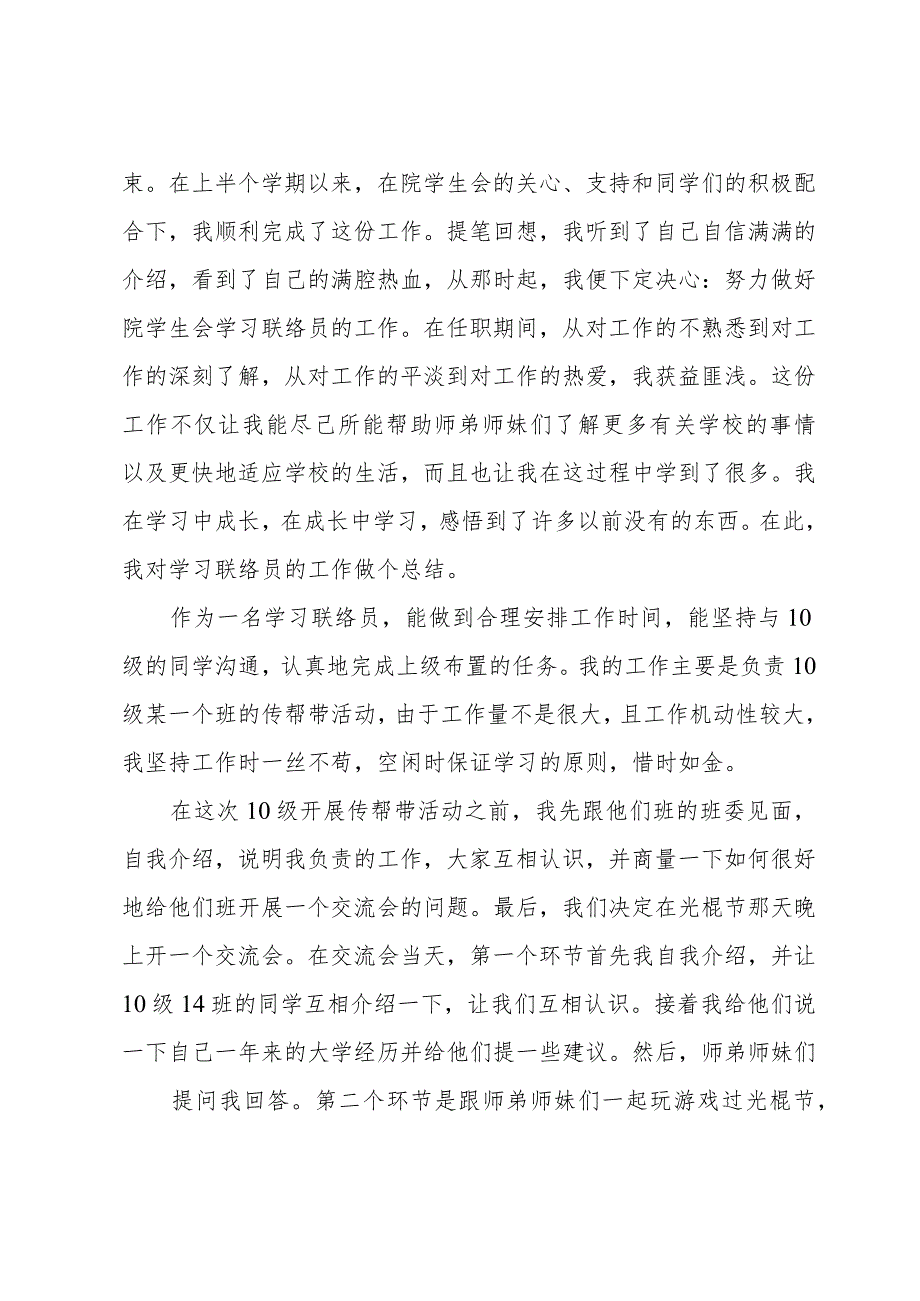 束。在上半个学期以来，在院学生会的关心、支持和同学们的积极配
合下，我顺利完成了这份工作。提笔回想，我听到了自己自信满满的
介绍，看到了自己的满腔热血，从那时起，我便下定决心：努力做好
院学生会学习联络员的工作。在任职期间，从对工作的不熟悉到对工
作的深刻了解，从对工作的平淡到对工作的热爱，我获益匪浅。这份
工作不仅让我能尽己所能帮助师弟师妹们了解更多有关学校的事情
以及更快地适应学校的生活，而且也让我在这过程中学到了很多。我
在学习中成长，在成长中学习，感悟到了许多以前没有的东西。在此，
我对学习联络员的工作做个总结。
作为一名学习联络员，能做到合理安排工作时间，能坚持与 10
级的同学沟通，认真地完成上级布置的任务。我的工作主要是负责 10
级某一个班的传帮带活动，由于工作量不是很大，且工作机动性较大，
我坚持工作时一丝不苟，空闲时保证学习的原则，惜时如金。
在这次 10 级开展传帮带活动之前，我先跟他们班的班委见面，
自我介绍，说明我负责的工作，大家互相认识，并商量一下如何很好
地给他们班开展一个交流会的问题。最后，我们决定在光棍节那天晚
上开一个交流会。在交流会当天，第一个环节首先我自我介绍，并让
10 级 14 班的同学互相介绍一下，让我们互相认识。接着我给他们说
一下自己一年来的大学经历并给他们提一些建议。然后，师弟师妹们
提问我回答。第二个环节是跟师弟师妹们一起玩游戏过光棍节，